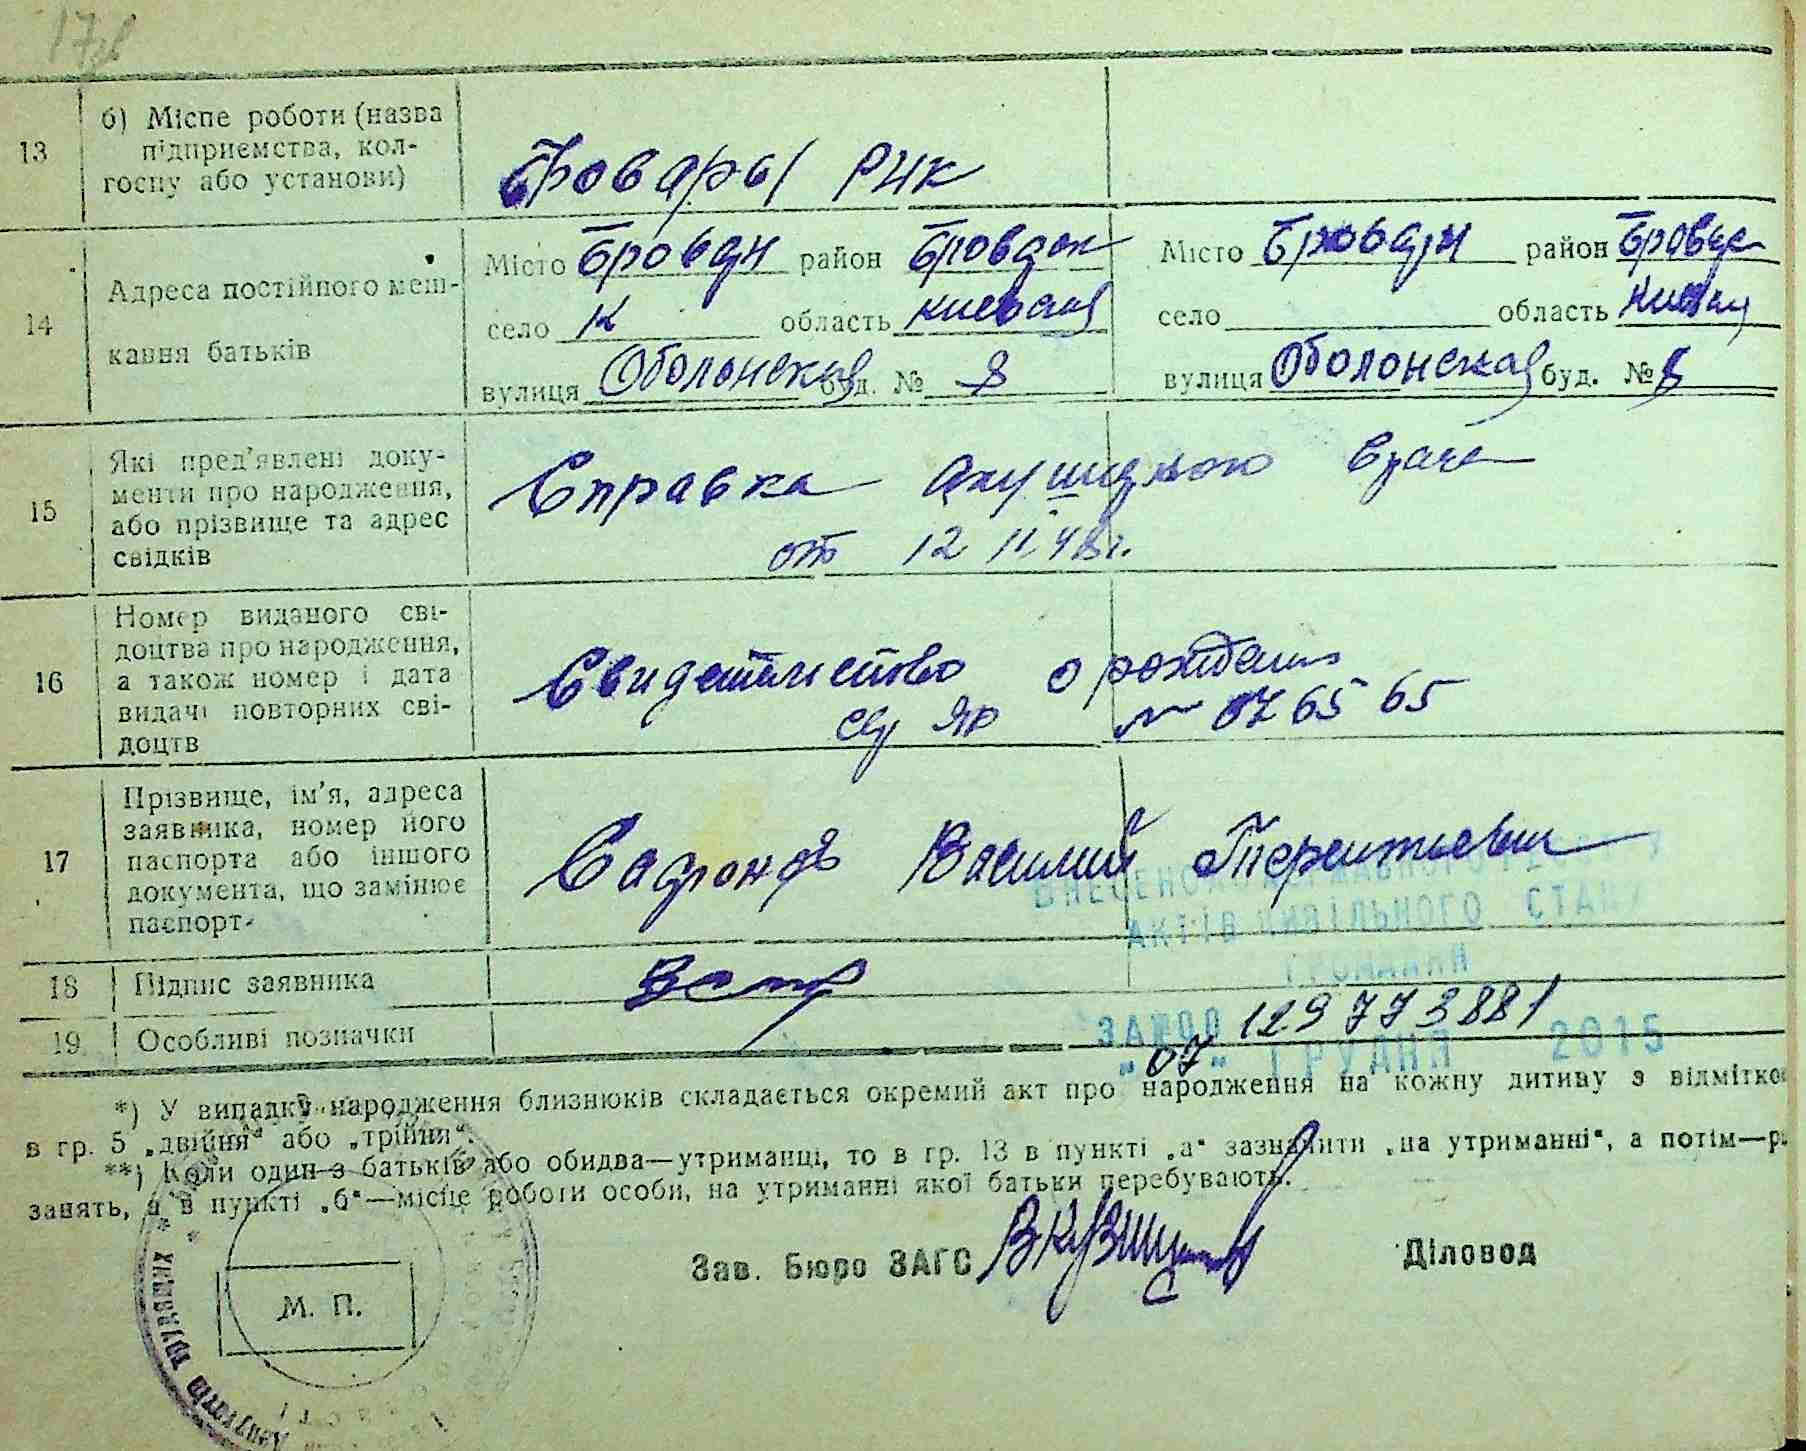 17зв
13
б) Місце роботи (назва
підприємства, кол-
госпу або установи)
Бровары РИК
14
Адреса постійного меш-
кання батьків
Місто Бровари район
село область Киевская
вулиця Оболонская буд. № 8
Місто Бровари район
село область
вулиця Оболонская буд. № 8
15
Які пред'явлені доку-
менти про народження,
або прізвище та адрес
свідків
Справка врача
от 12 II 48 г.
16
Номер виданого сві-
доцтва про народження,
а також номер і дата
видачі повторних сві-
доцтв
Свидетельство о рождении
№ 076565
17
Прізвище, ім'я, адреса
заявника, номер його
паспорта або іншого
документа, що замінює
паспорт.
Сафонов Василий Терентиевич
ВНЕСЕНО ДО ДЕРЖАВНОГО РЕЄСТРУ
АКТІВ ЦИВІЛЬНОГО СТАНУ
ГРОМАДЯН
18
Підпис заявника
19
Особливі позначки
ЗА №00 129773881
„07" ГРУДНЯ 2015
*) У випадку народження близнюків складається окремий акт про народження на кожну дитину з відміткою
в гр. 5 „двійня" або „трійня".
**) Коли один з батьків або обидва—утриманці, то в гр. 13 в пункті „а" зазначити „на утриманні", а потім—р
занять, а в пункті „б"—місце роботи особи, на утриманні якої батьки перебувають.
Зав. Бюро ЗАГС
Діловод
М. П.